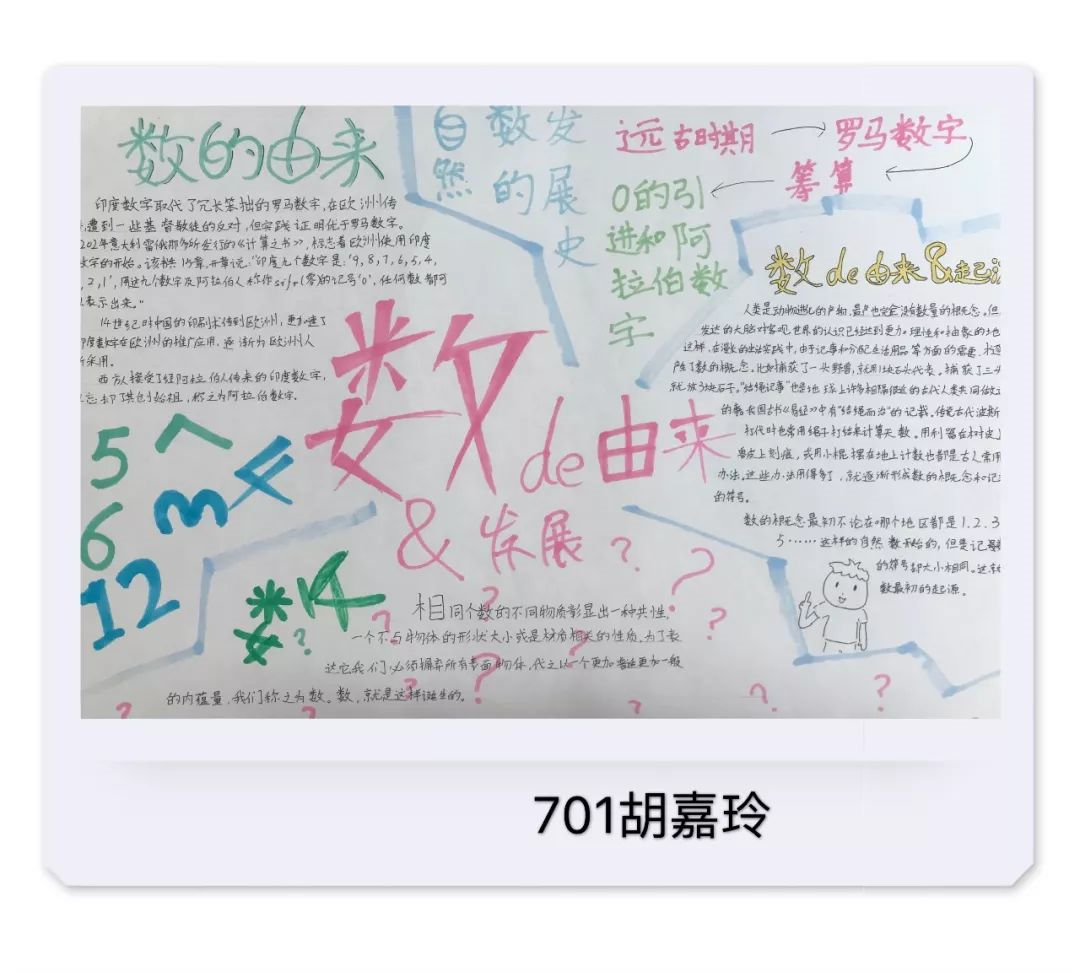 数的由来
印度数字取代了冗长笨拙的罗马数字,在欧洲传
遭到一些基督教徒的反对,但实践证明优于罗马数字。
202年意大利雷俄那多所发行的《计算之书》,标志着欧洲使用印度
文字的开始。该书共15章,开章说:"印度九个数字是:'9,8,7,6,5,4,
,2,1',用这九个数字及阿拉伯人称作sifr(零)的记号'0',任何数都可
表示出来。"
14世纪时中国的印刷术传到欧洲,更加速了
印度数字在欧洲的推广应用,逐渐为欧洲人
所采用。
西方人接受了经阿拉伯人传来的印度数字,
忘却了其创始祖,称之为阿拉伯数字。
自然
数的
发展史
远古时期
罗马数字
筹算
0的引
进和阿
拉伯数
字
数de由来&起
人类是动物进化的产物,最初也完全没有数量的概念。但
发达的大脑对客观世界的认识已经达到更加理性和抽象的地
这样,在漫长的生活实践中,由于记事和分配生活用品等方面的需要,才逐
产生了数的概念。比如捕获了一头野兽,就用1块石头代表。捕获了三头
就放3块石子。"结绳记事"也是地球上许多相隔很近的古代人类共同做过
的事。我国古书《易经》中有"结绳而治"的记载。传说古代波斯
打仗时也常用绳子打结来计算天数。用利器在树皮上
兽皮上刻痕,或用小棍摆在地上计数也都是古人常用
办法。这些办法用得多了,就逐渐形成数的概念和记
的符号。
数的概念最初不论在哪个地区都是1.2.3
5……这样的自然数开始的,但是记录
的符号却大小相同。这就
数最初的起源。
数de由来
&发展
5
6
12
相同个数的不同物质彰显出一种共性,
一个不与物体的形状大小或是材质相关的性质。为了表
达它我们必须摒弃所有表面物体,代之以一个更加普适更加一般
的内蕴量,我们称之为数。数,就是这样诞生的。
701胡嘉玲